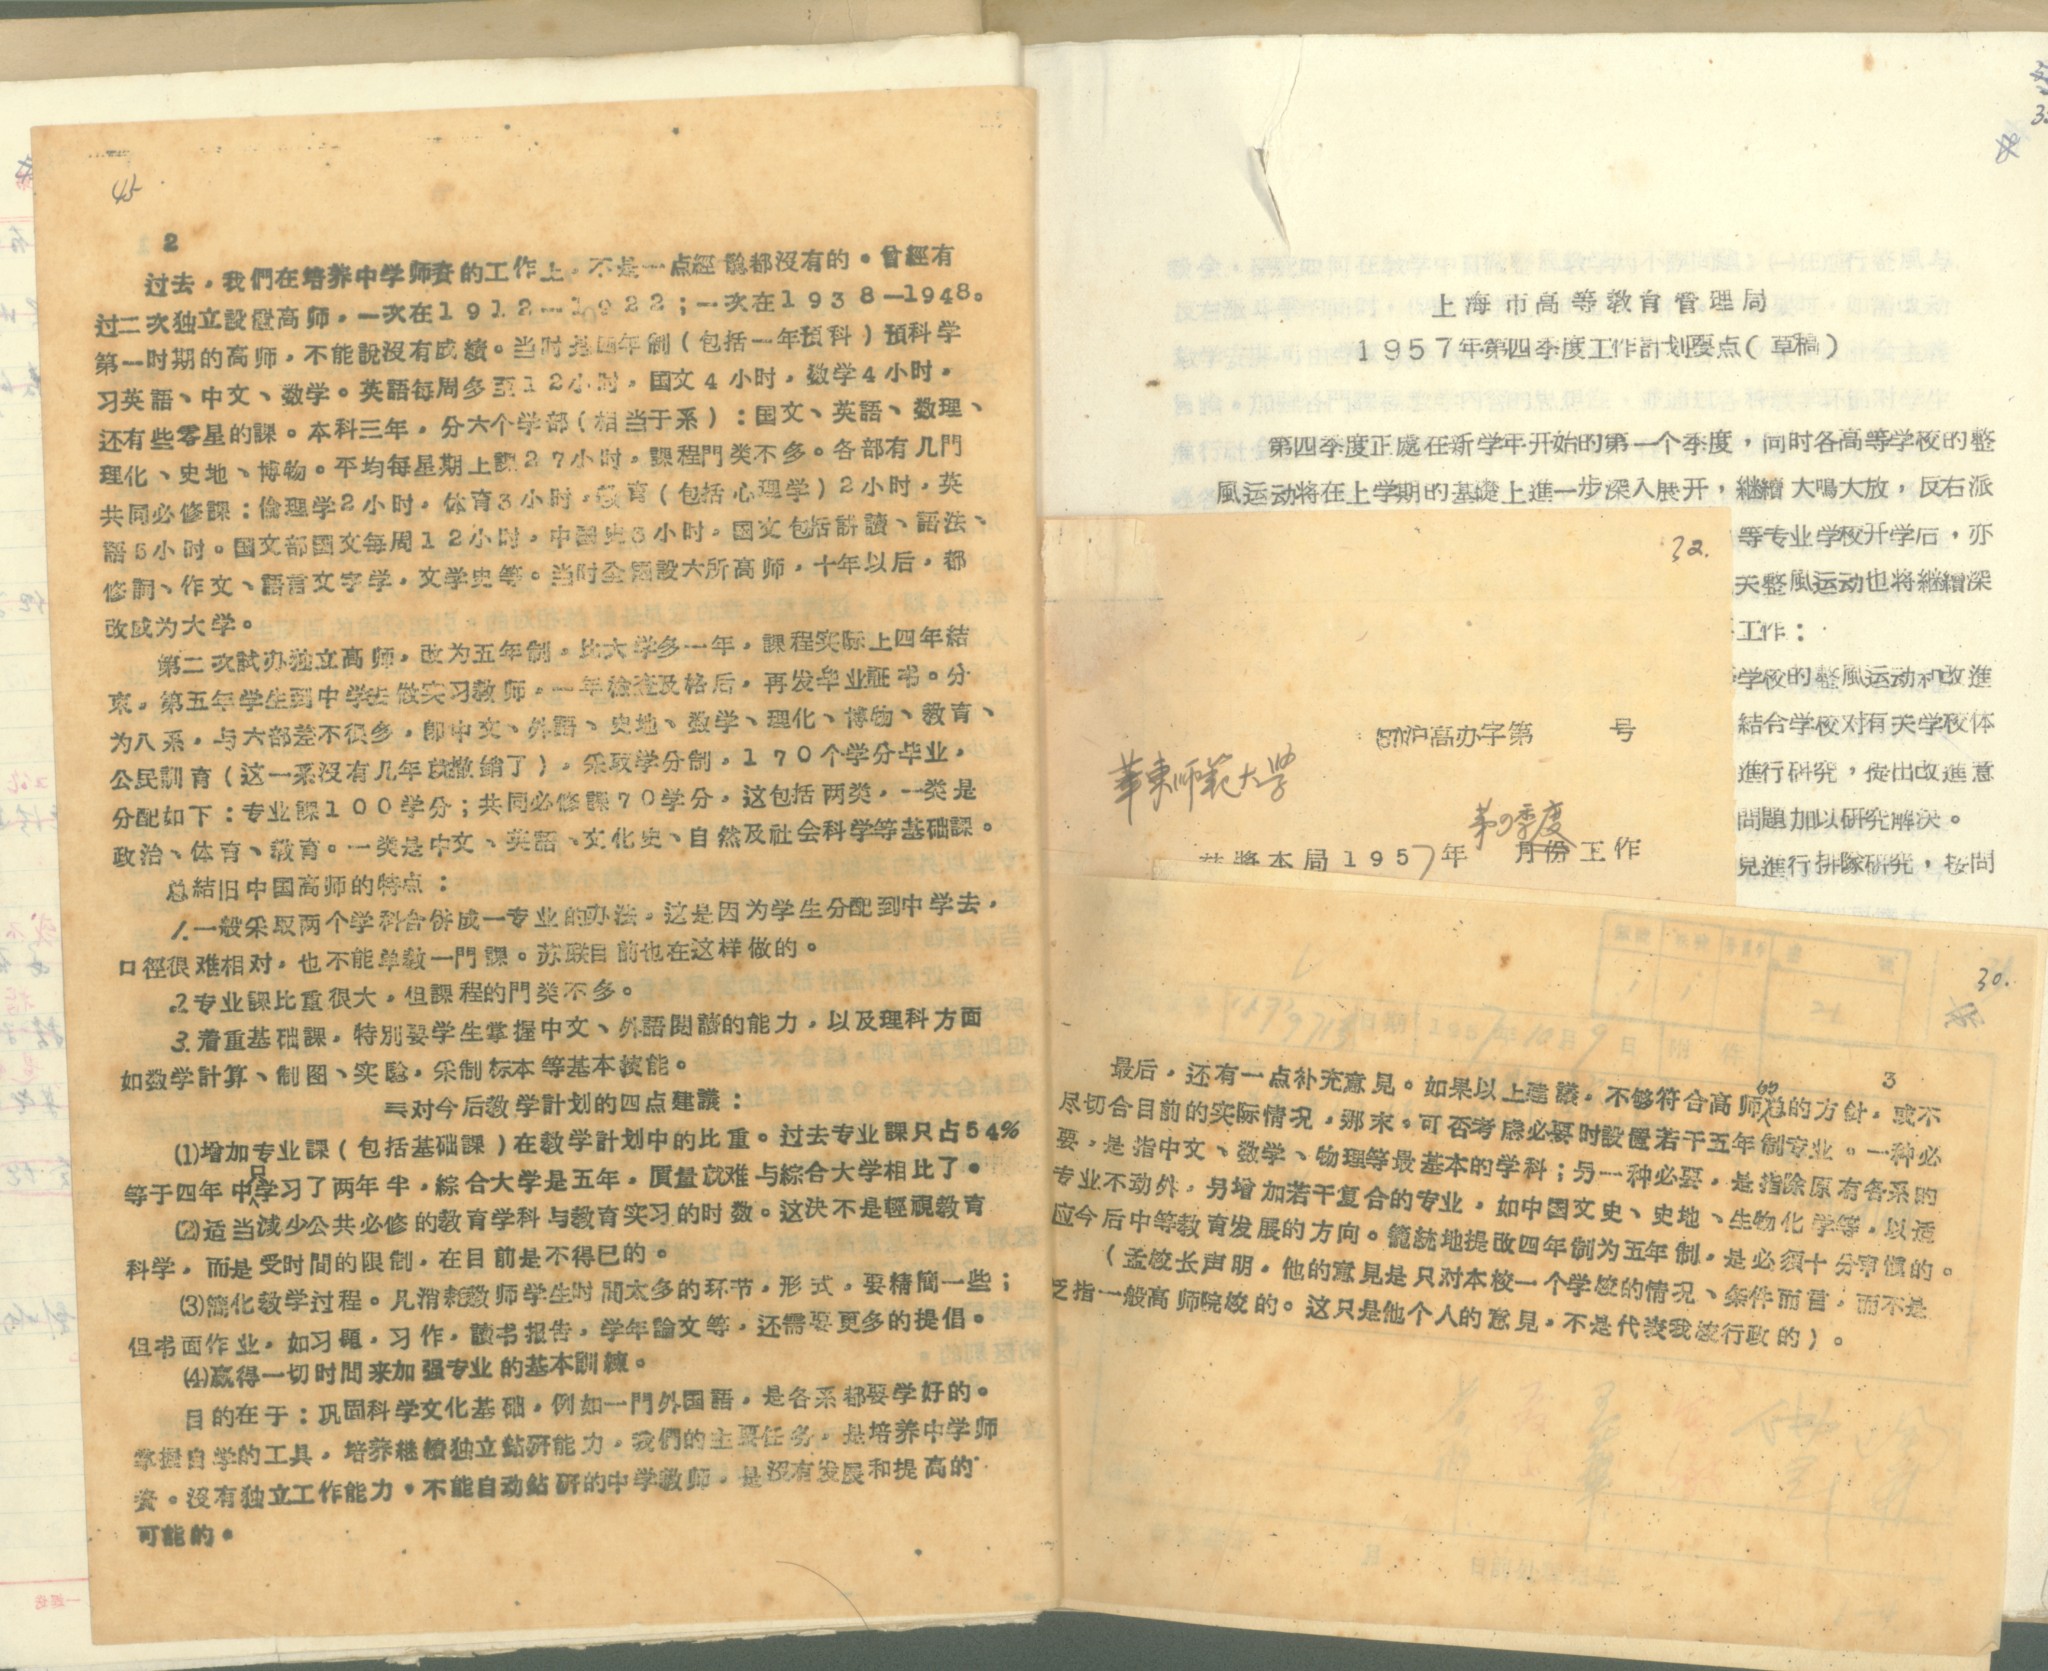 45
2
过去，我們在培养中学师資的工作上，不是一点經驗都沒有的。曾經有
过二次独立設置高师，一次在1912—1922；一次在1938—1948。
第一时期的高师，不能說沒有成績。当时是四年制（包括一年預科）預科学
习英語、中文、数学。英語每周多至12小时，国文4小时，数学4小时，
还有些零星的課。本科三年，分六个学部（相当于系）：国文、英語、数理、
理化、史地、博物。平均每星期上課27小时，課程門类不多。各部有几門
共同必修課：倫理学2小时，体育3小时，教育（包括心理学）2小时，英
語5小时。国文部國文每周12小时，中國史3小时，國文包括講讀、語法、
修詞、作文、語言文字学，文学史等。当时全國設六所高师，十年以后，都
改成为大学。
第二次試办独立高师，改为五年制，比大学多一年，課程实际上四年結
束，第五年学生到中学去做实习教师，一年檢查及格后，再发毕业証书。分
为八系，与六部差不很多，即中文、外語、史地、数学、理化、博物、教育、
公民訓育（这一系沒有几年就撤銷了），采取学分制，170个学分毕业，
分配如下：专业課100学分；共同必修課70学分，这包括两类，一类是
政治、体育、教育。一类是中文、英語、文化史、自然及社会科学等基础課。
总結旧中国高师的特点：
1.一般采取两个学科合併成一专业的办法，这是因为学生分配到中学去，
口徑很难相对，也不能单教一門課。苏联目前也在这样做的。
2.专业課比重很大，但課程的門类不多。
3.着重基础課，特別要学生掌握中文、外語閱讀的能力，以及理科方面
如数学計算、制图、实驗，采制标本等基本技能。
三对今后教学計划的四点建議：
⑴增加专业課（包括基础課）在教学計划中的比重。过去专业課只占54%
等于四年中只学习了两年半，綜合大学是五年，质量就难与綜合大学相比了。
⑵适当减少公共必修的教育学科与教育实习的时数。这决不是輕視教育
科学，而是受时間的限制，在目前是不得已的。
⑶簡化教学过程。凡消耗教师学生时間太多的环节，形式，要精簡一些；
但书面作业，如习題，习作，讀书报告，学年論文等，还需要更多的提倡。
⑷贏得一切时間来加强专业的基本訓練。
目的在于：巩固科学文化基础，例如一門外国語，是各系都要学好的。
掌握自学的工具，培养継續独立鉆研能力，我們的主要任务，是培养中学师
資。沒有独立工作能力，不能自动鉆研的中学教师，是沒有发展和提高的
可能的。
上海市高等教育管理局
1957年第四季度工作計划要点（草稿）
第四季度正處在新学年开始的第一个季度，同时各高等学校的整
風运动将在上学期的基礎上進一步深入展开，継續大鳴大放，反右派
等专业学校开学后，亦
天整風运动也将継續深
工作：
学校的整風运动和改進
結合学校对有关学校体
進行研究，提出改進意
問題加以研究解决。
見進行排隊研究，按問
32.
57沪高办字第　　号
華東师範大学
第四季度
茲將本局1957年月份工作
30.
3
最后，还有一点补充意見。如果以上建議，不够符合高师的总的方針，或不
尽切合目前的实际情况，那末，可否考虑必要时設置若干五年制专业。一种必
要，是指中文、数学、物理等最基本的学科；另一种必要，是指除原有各系的
专业不动外，另增加若干复合的专业，如中国文史、史地、生物化学等，以适
应今后中等教育发展的方向。籠統地提改四年制为五年制，是必須十分审慎的。
（孟校长声明，他的意見是只对本校一个学校的情况、条件而言，而不是
乏指一般高师院校的。这只是他个人的意見，不是代表我校行政的）。